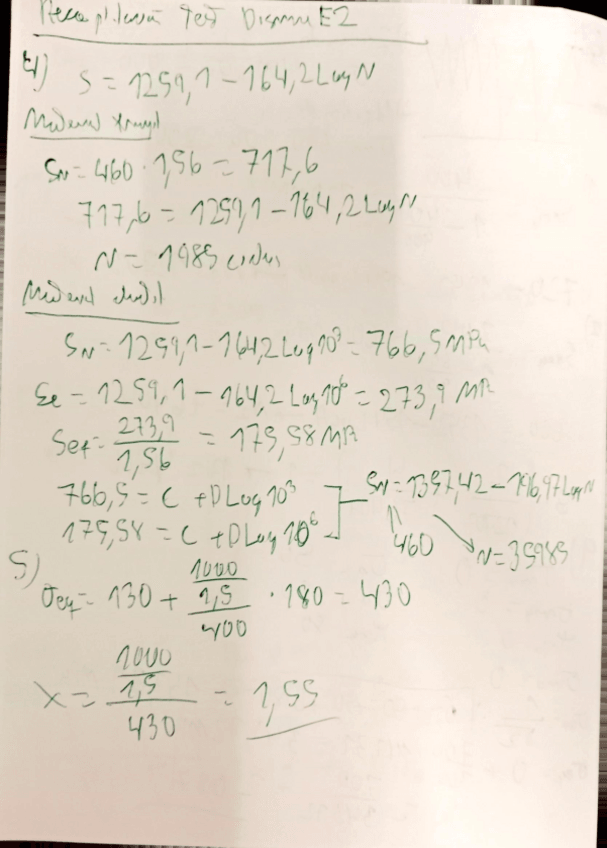 Test E2
4) S = 1259,1 - 164,2 Log N
Material fragil
SN = 460 · 1,56 = 717,6
717,6 = 1259,1 - 164,2 Log N
N = 1985 ciclos
Material dúctil
SN = 1259,1 - 164,2 Log 10³ = 766,5 MPa
Se = 1259,1 - 164,2 Log 10⁶ = 273,9 MPa
Sef = 273,9 / 1,56 = 175,58 MPa
766,5 = C + D Log 10³
175,58 = C + D Log 10⁶
SN = 1357,42 - 196,97 Log N
460
N = 35985
5)
σeq = 130 + ((1000 / 1,5) / 400) · 180 = 430
X = (1000 / 1,5) / 430 = 1,55